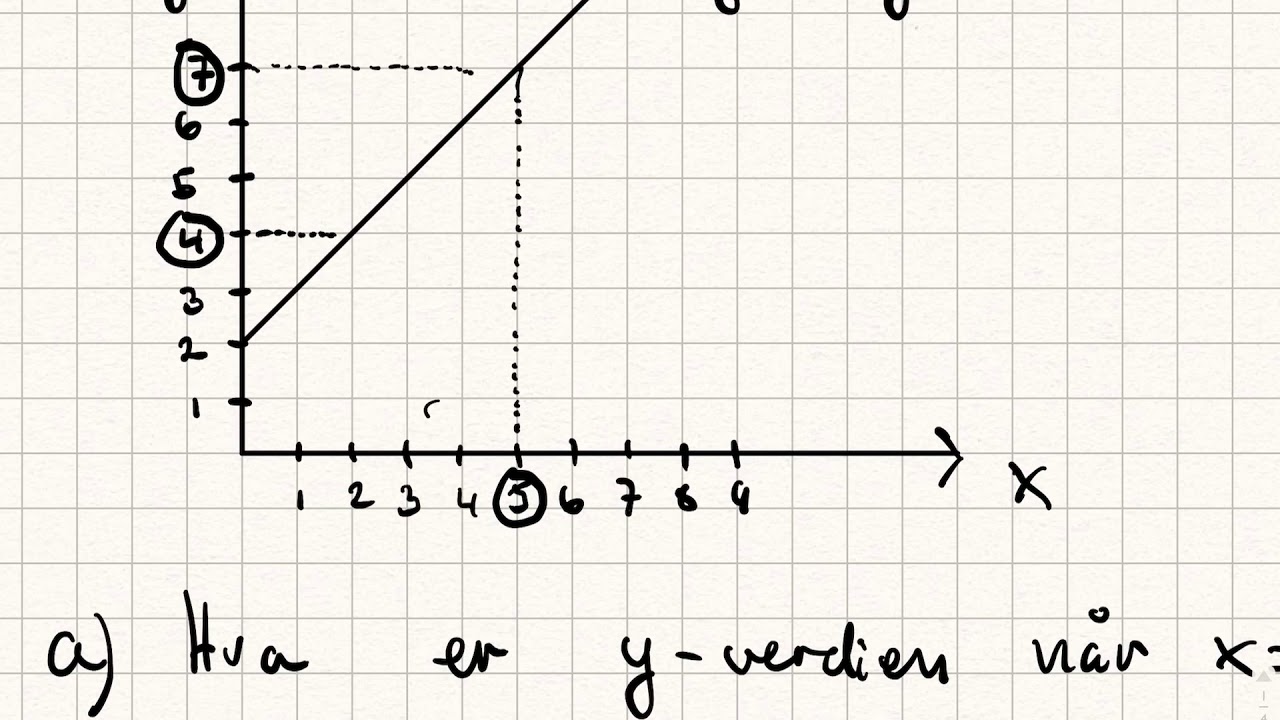 7
6
5
4
3
2
1
1 2 3 4 5 6 7 8 9
x
a) Hva er y-verdien når x=